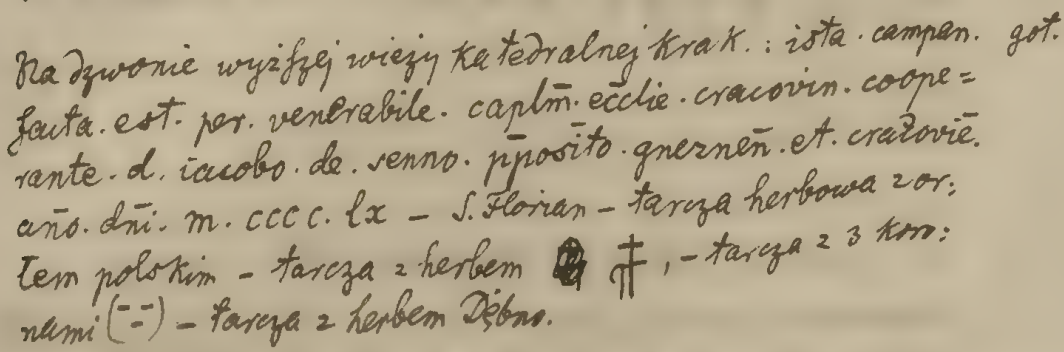 Na dzwonie wyższej wieży katedralnej krak. : ista · campan. got.
facta . est · per . venerabile . caplm̄ · ec̄c̄lie · cracovin . coope=
rante . d . iacobo . de . senno . p̄posīto · gnezneñ . et . cracoviē.
año . dn̄i . m . cccc . lx – S. Florian – tarcza herbowa z or:
łem polskim – tarcza z herbem , – tarcza z 3 koro:
nami (– – –) – tarcza z herbem Dębno.